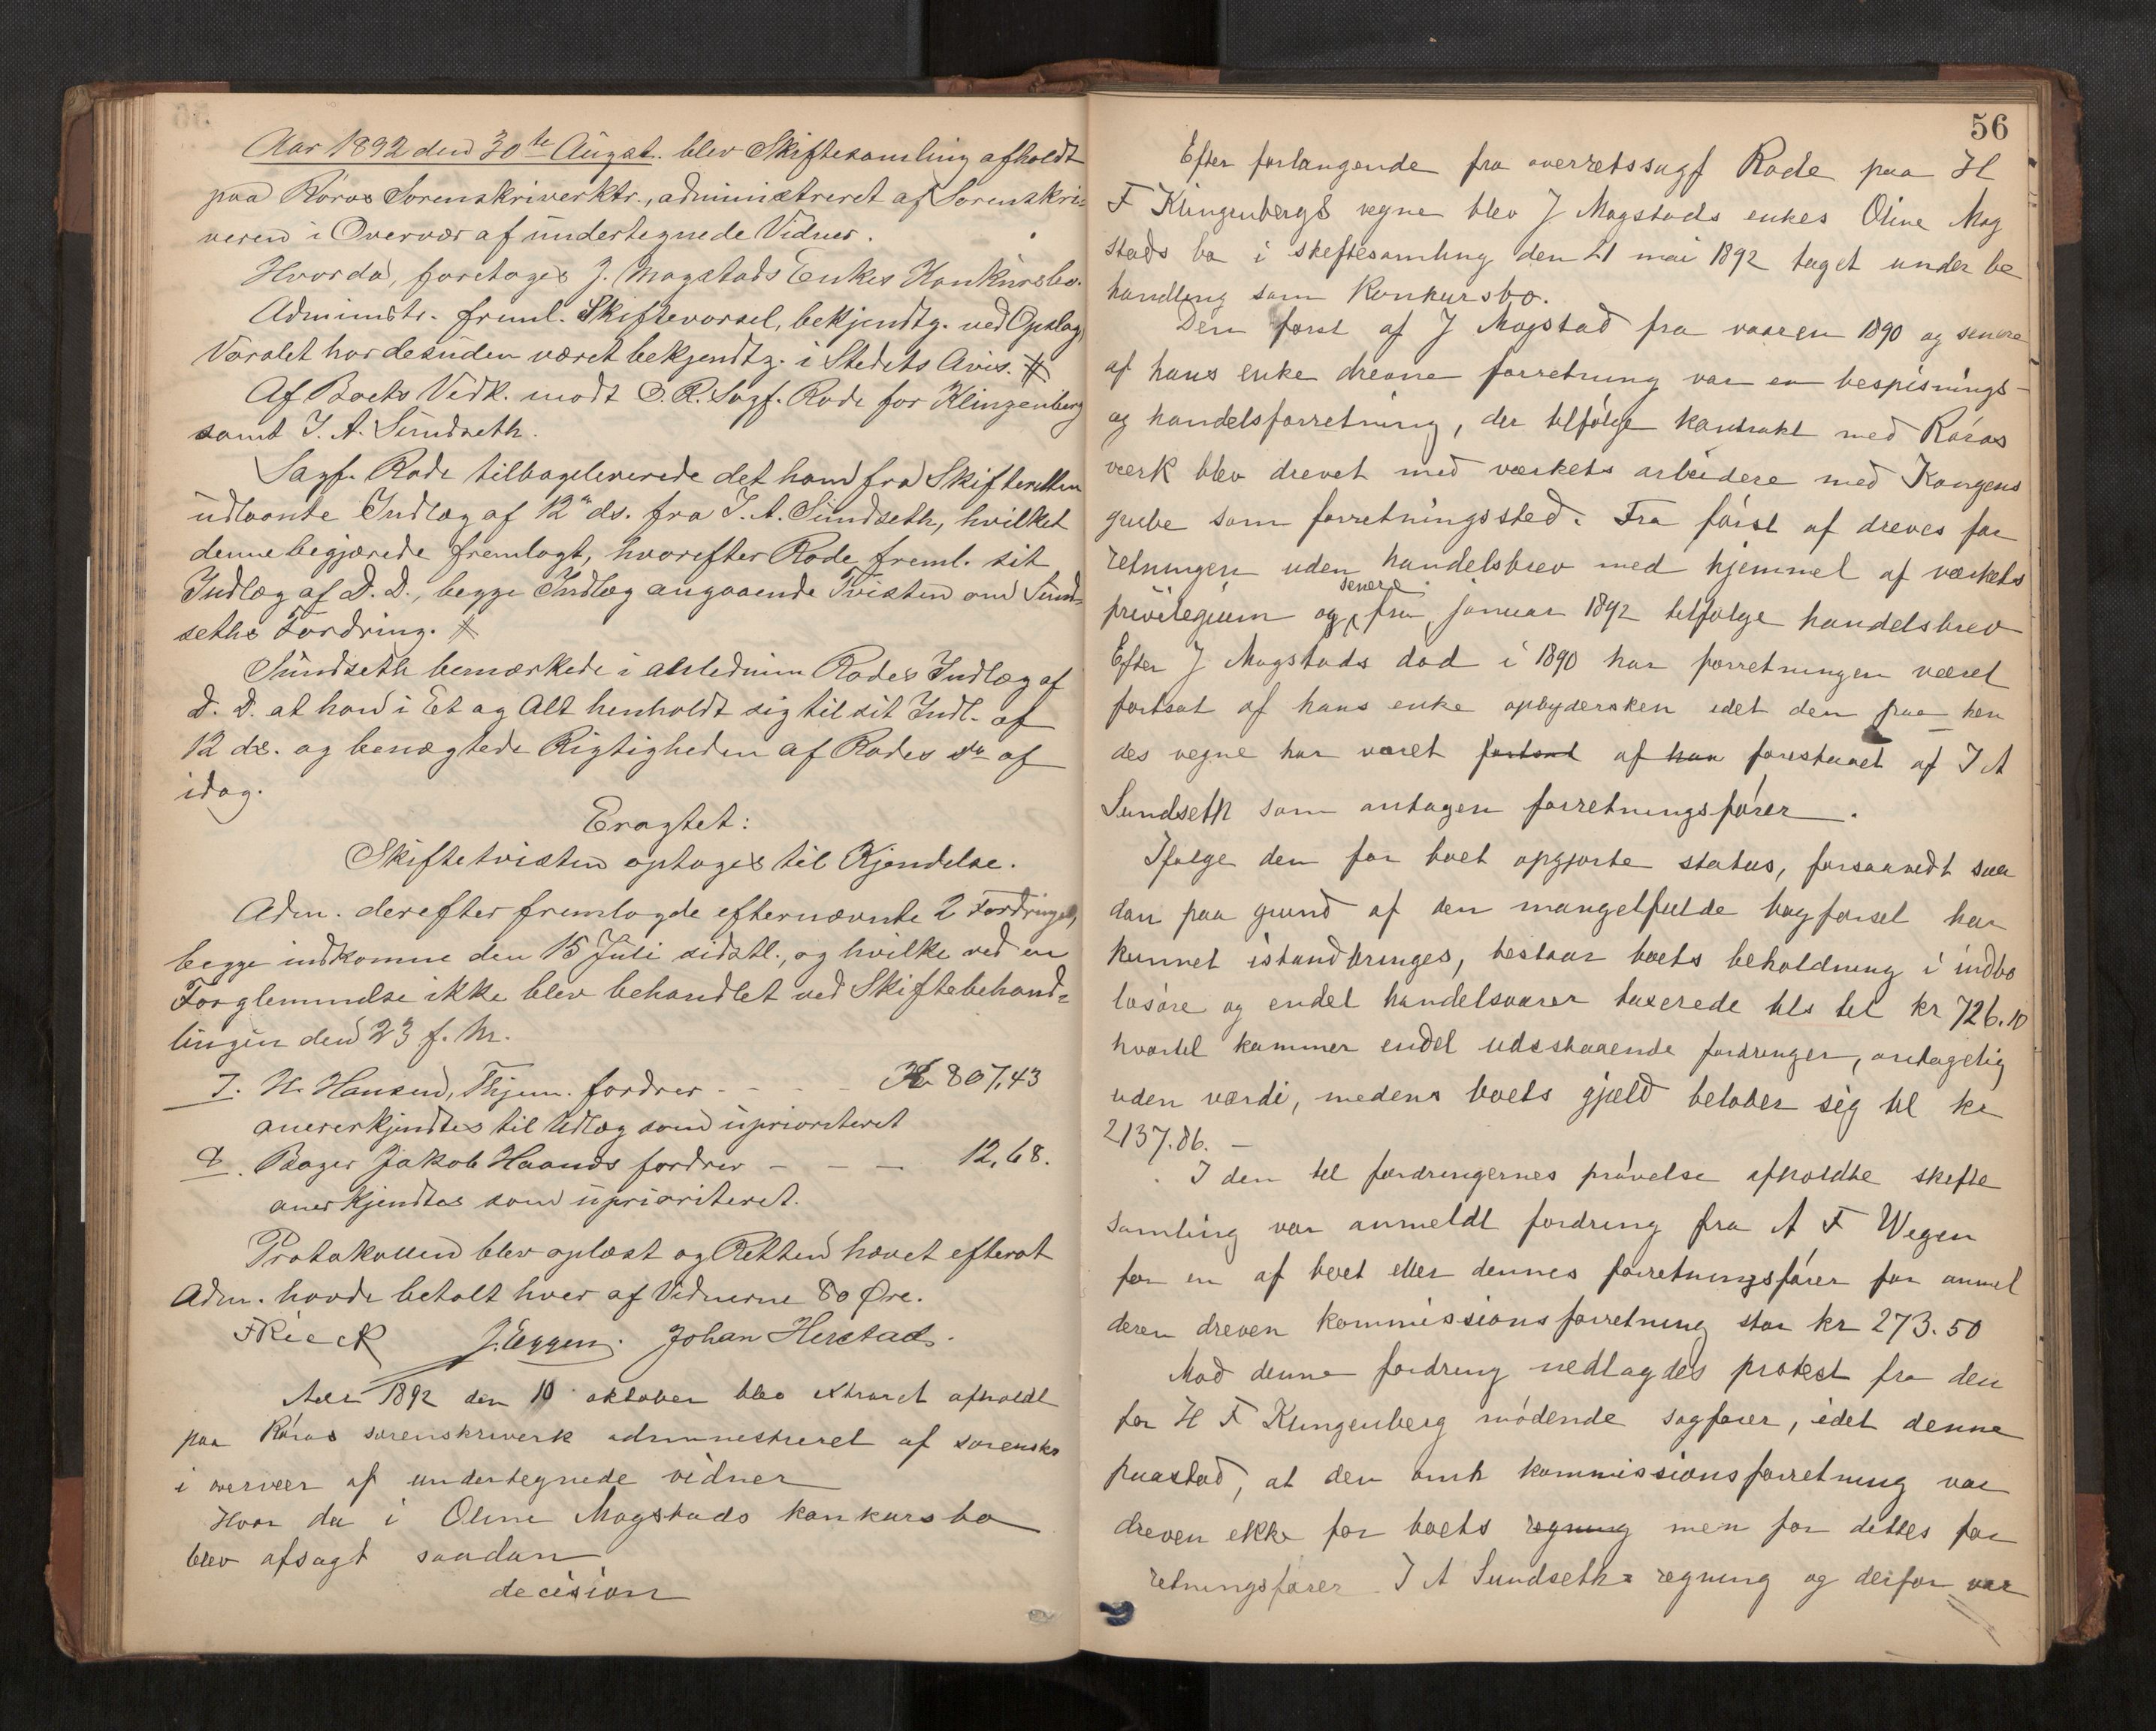 Aar 1892 den 30te August. blev Skiftesamling afholdt
paa Röros Sorenskriverktr., administreret af Sorenskri-
veren i Overvær af undertegnede Vidner.
Hvorda, foretoges J. Magstads Enkes Konkursbo.
Administr. freml. Skiftevarsel, bekjendtg. ved Opslag,
Varslet har desuden været bekjendtg. i Stedets Avis. #
Af Boets Vedk. mødt O. R. Sagf. Rode for Klingenberg
samt J. A. Sundseth.
Sagf. Rode tilbageleverede det ham fra Skifteretten
udlaante Indlæg af 12te ds. fra J. A. Sundseth, hvilket
denne begjærede fremlagt, hvorefter Rode freml. sit
Indlæg af D. D., begge Indlæg angaaende Tvisten om Sund-
seths Fordring. #
Sundseth bemærkede i anledning Rodes Indlæg af
D. D. at han i Et og Alt henholdt sig til sit Indl. af
12 ds. og benægtede Rigtigheden af Rodes do af
idag.
Eragtet:
Skiftetvisten optoges til Kjendelse.
Adm. derefter fremlagde efternævnte 2 Fordringer,
begge indkomne den 15 Juli sidstl., og hvilke ved en
Forglemmelse ikke blev behandlet ved Skiftebehand-
lingen den 23 f. M.
7. H. Hansen, Thjem. fordrer - - - - Kr 807,43
anererkjendtes til Udlæg som uprioriteret
8. Bager Jakob Haanes fordrer - - - 12,68.
anerkjendtes som uprioriteret.
Protokollen blev oplæst og Retten hævet efterat
Adm. havde betalt hver af Vidnerne 80 Øre.
FRieck J. Eggen. Johan Herstad.
Aar 1892 den 10 oktober blev extraret afholdt
paa Röros sorenskriverk administreret af sorenskr
i overvær af undertegnede vidner
Hvor da i Oline Magstads konkursbo
blev afsagt saadan
decision
56
Efter forlangende fra overretssagf Rode paa H
F Klingenbergs vegne blev J Magstads enkes Oline Mag
stads bo i skiftesamling den 21 mai 1892 taget under be
handling som konkursbo.
Den først af J Magstad fra vaaren 1890 og senere
af hans enke drevne forretning var en bespisnings-
og handelsforretning, der tilfølge kontrakt med Røros
værk blev drevet med værkets arbeidere med Kongens
grube som forretningssted. Fra først af dreves for
retningen uden handelsbrev med hjemmel af værkets
privilegium og senere fra januar 1892 tilfølge handelsbrev
Efter J Magstads død i 1890 har forretningen været
fortsat af hans enke opbydersken idet den paa hen
des vegne har været fortsat af han forestaaet af J A
Sundseth som antagen forretningsfører.
Ifølge den for boet opgjorte status, forsaavidt saa
dan paa grund af den mangelfulde bogførsel har
kunnet istandbringes, bestaar boets beholdning i indbo
løsøre og endel handelsvarer taxerede tils til kr 726.10
hvortil kommer endel udestaaende fordringer, antagelig
uden værdi, medens boets gjæld beløber sig til kr
2137.86. —
I den til fordringernes prøvelse afholdte skifte
samling var anmeldt fordring fra A F Wegen
for en af boet eller dennes forretningsfører for anmel
deren dreven kommissionsforretning stor kr 273.50
Mod denne fordring nedlagdes protest fra den
for H F Klingenberg mødende sagfører, idet denne
paastod, at den omh kommissionsforretning var
dreven ikke for boets regning men for dettes for
retningsfører J A Sundseths regning og derfor var